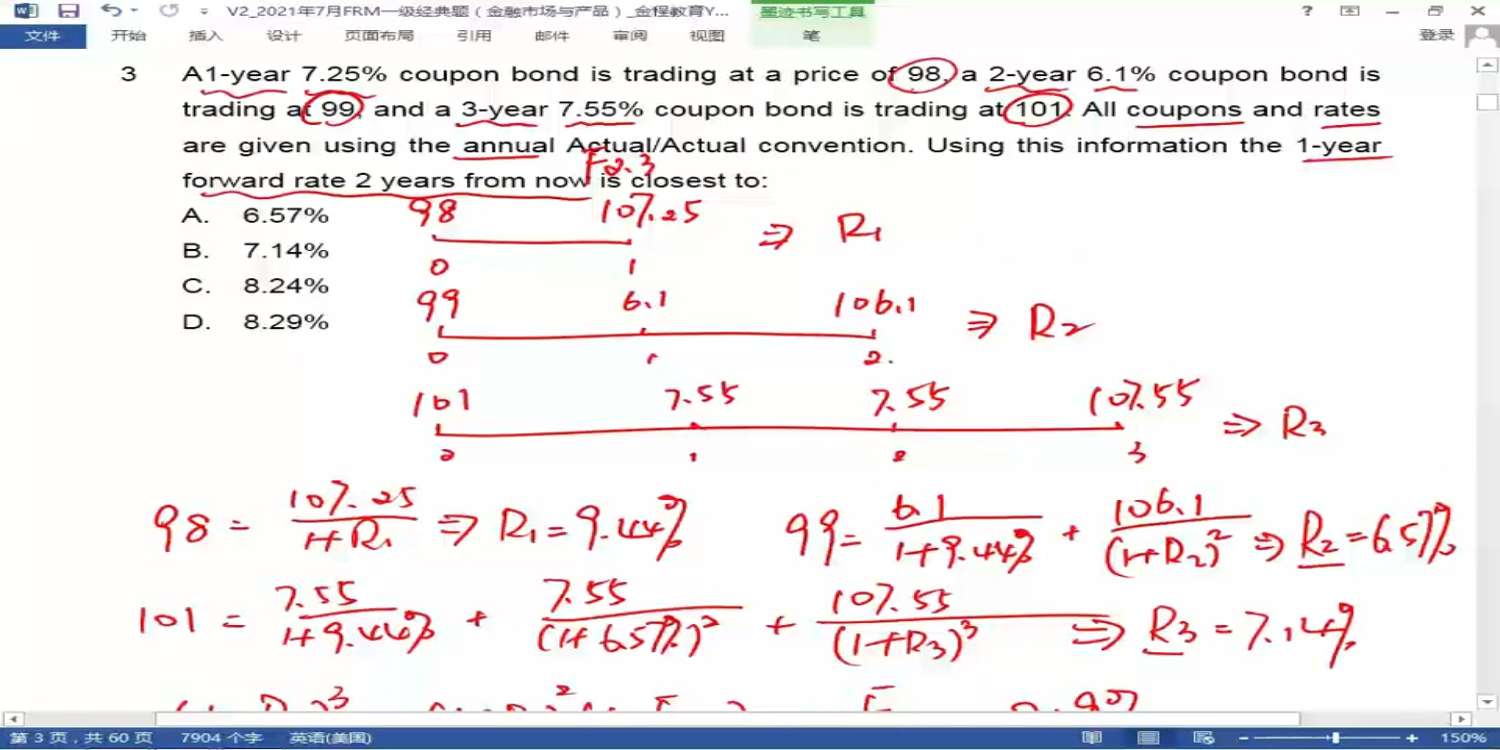 V2_2021年7月FRM一级经典题（金融市场与产品）_金程教育Y... 墨迹书写工具
文件 开始 插入 设计 页面布局 引用 邮件 审阅 视图 笔 登录
3 A1-year 7.25% coupon bond is trading at a price of 98, a 2-year 6.1% coupon bond is
trading at 99, and a 3-year 7.55% coupon bond is trading at 101. All coupons and rates
are given using the annual Actual/Actual convention. Using this information the 1-year
F2.3
forward rate 2 years from now is closest to:
A. 6.57%
98 107.25 ⇒ R1
B. 7.14%
0 1
C. 8.24%
99 6.1 106.1 ⇒ R2
D. 8.29%
0 1 2.
101 7.55 7.55 107.55 ⇒ R3
1 2 3
98 = 107.25 / 1+R1 ⇒ R1 = 9.44% 99 = 6.1 / 1+9.44% + 106.1 / (1+R2)² ⇒ R2 = 6.57%
101 = 7.55 / 1+9.44% + 7.55 / (1+6.57%)² + 107.55 / (1+R3)³ ⇒ R3 = 7.14%
第 3 页，共 60 页 7904 个字 英语(美国) 150%